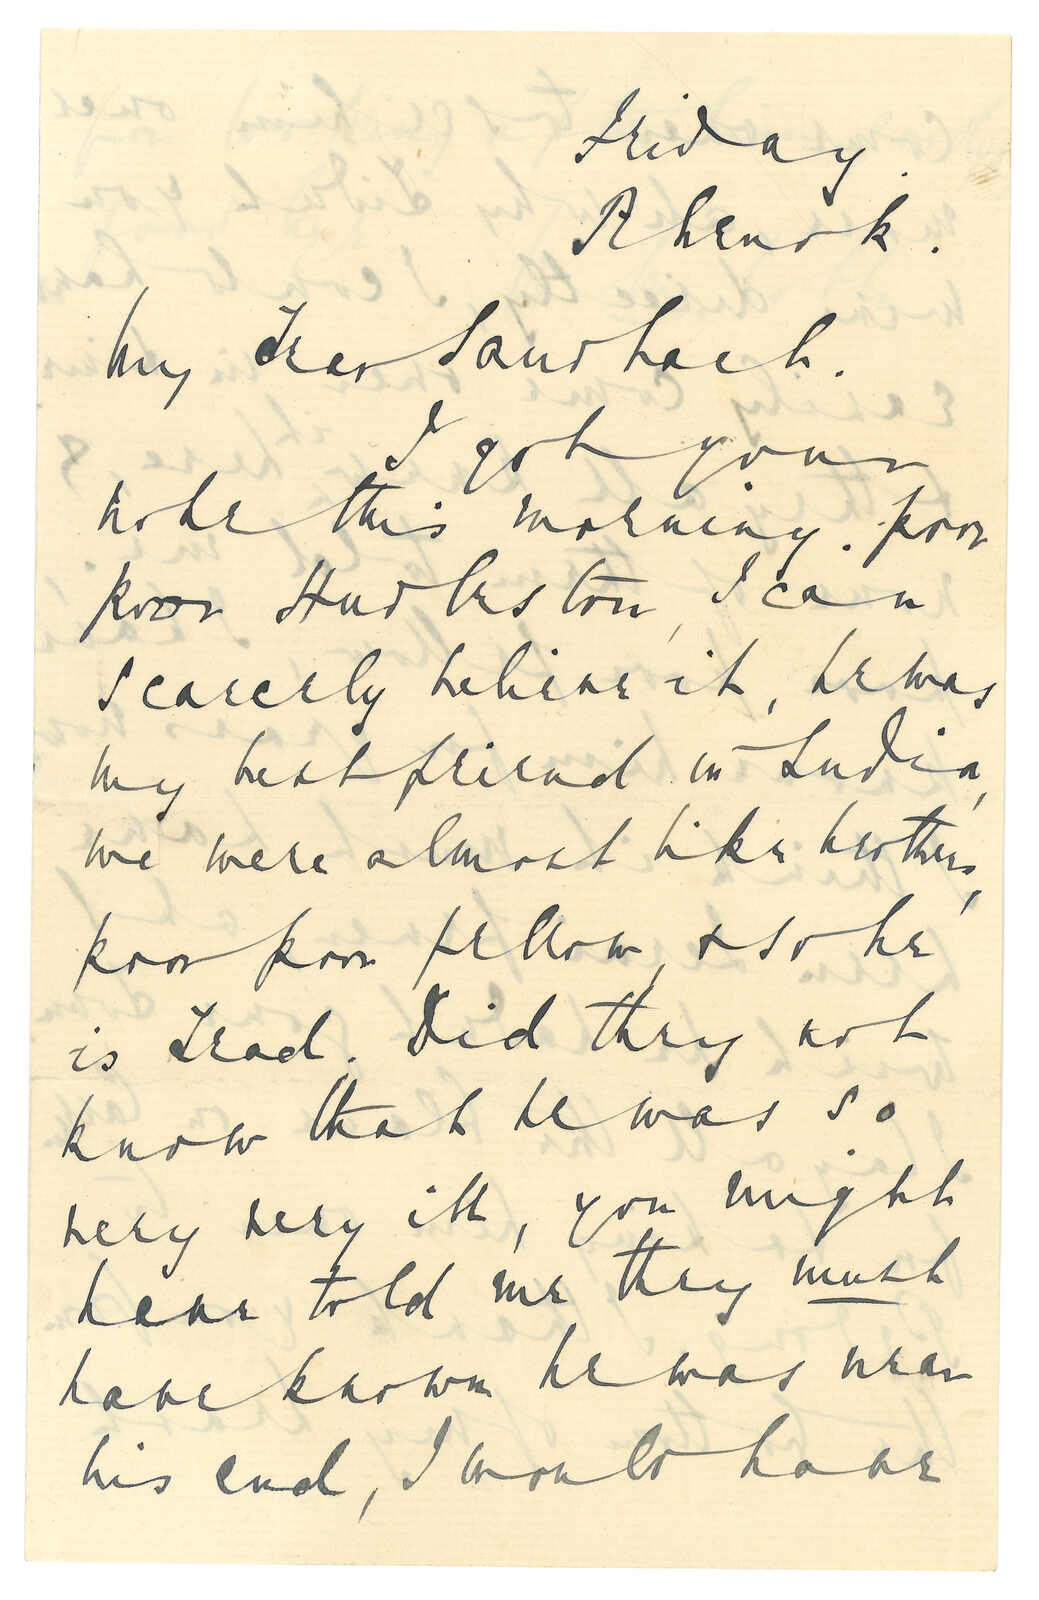 Friday.
Rhenok.
My Dear Sandbach.
I got your
note this morning. poor
poor Hudleston, I can
scarcerly believe it, he was
my best friend in India,
we were almost like brothers,
poor poor fellow, & so he
is Dead. Did they not
know that he was so
very very ill, you might
have told me they must
have known he was near
his end, I would have